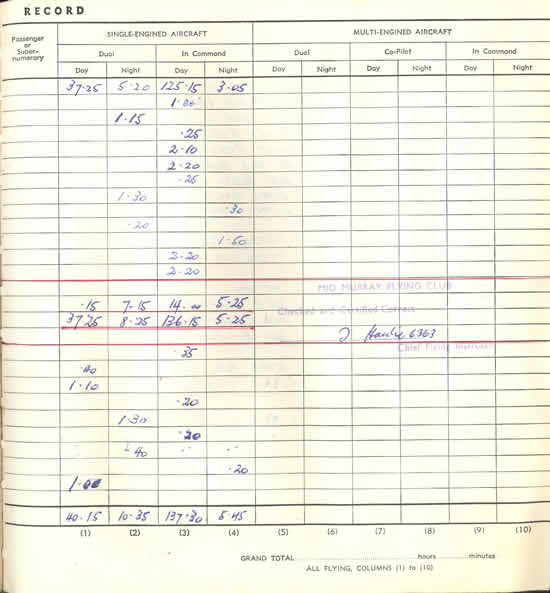 RECORD
Passenger or Super-numerary SINGLE-ENGINED AIRCRAFT MULTI-ENGINED AIRCRAFT
Dual In Command Dual Co-Pilot In Command
Day Night Day Night Day Night Day Night Day Night
37·25 5·20 125·15 3·05
1·00
1·15
·25
2-10
2-20
·25
1·30
·30
·20
1·50
2-20
2-20
MID MURRAY FLYING CLUB
·15 7·15 14·00 5·25
Checked and Certified Correct
37·25 8·25 136·15 5-25
6363
Chief Flying Instructor
·35
·40
1·10
·20
1·30
·20
-40
·20
1·00
40·15 10·35 137·30 5·45
(1) (2) (3) (4) (5) (6) (7) (8) (9) (10)
GRAND TOTAL hours minutes
ALL FLYING, COLUMNS (1) to (10)